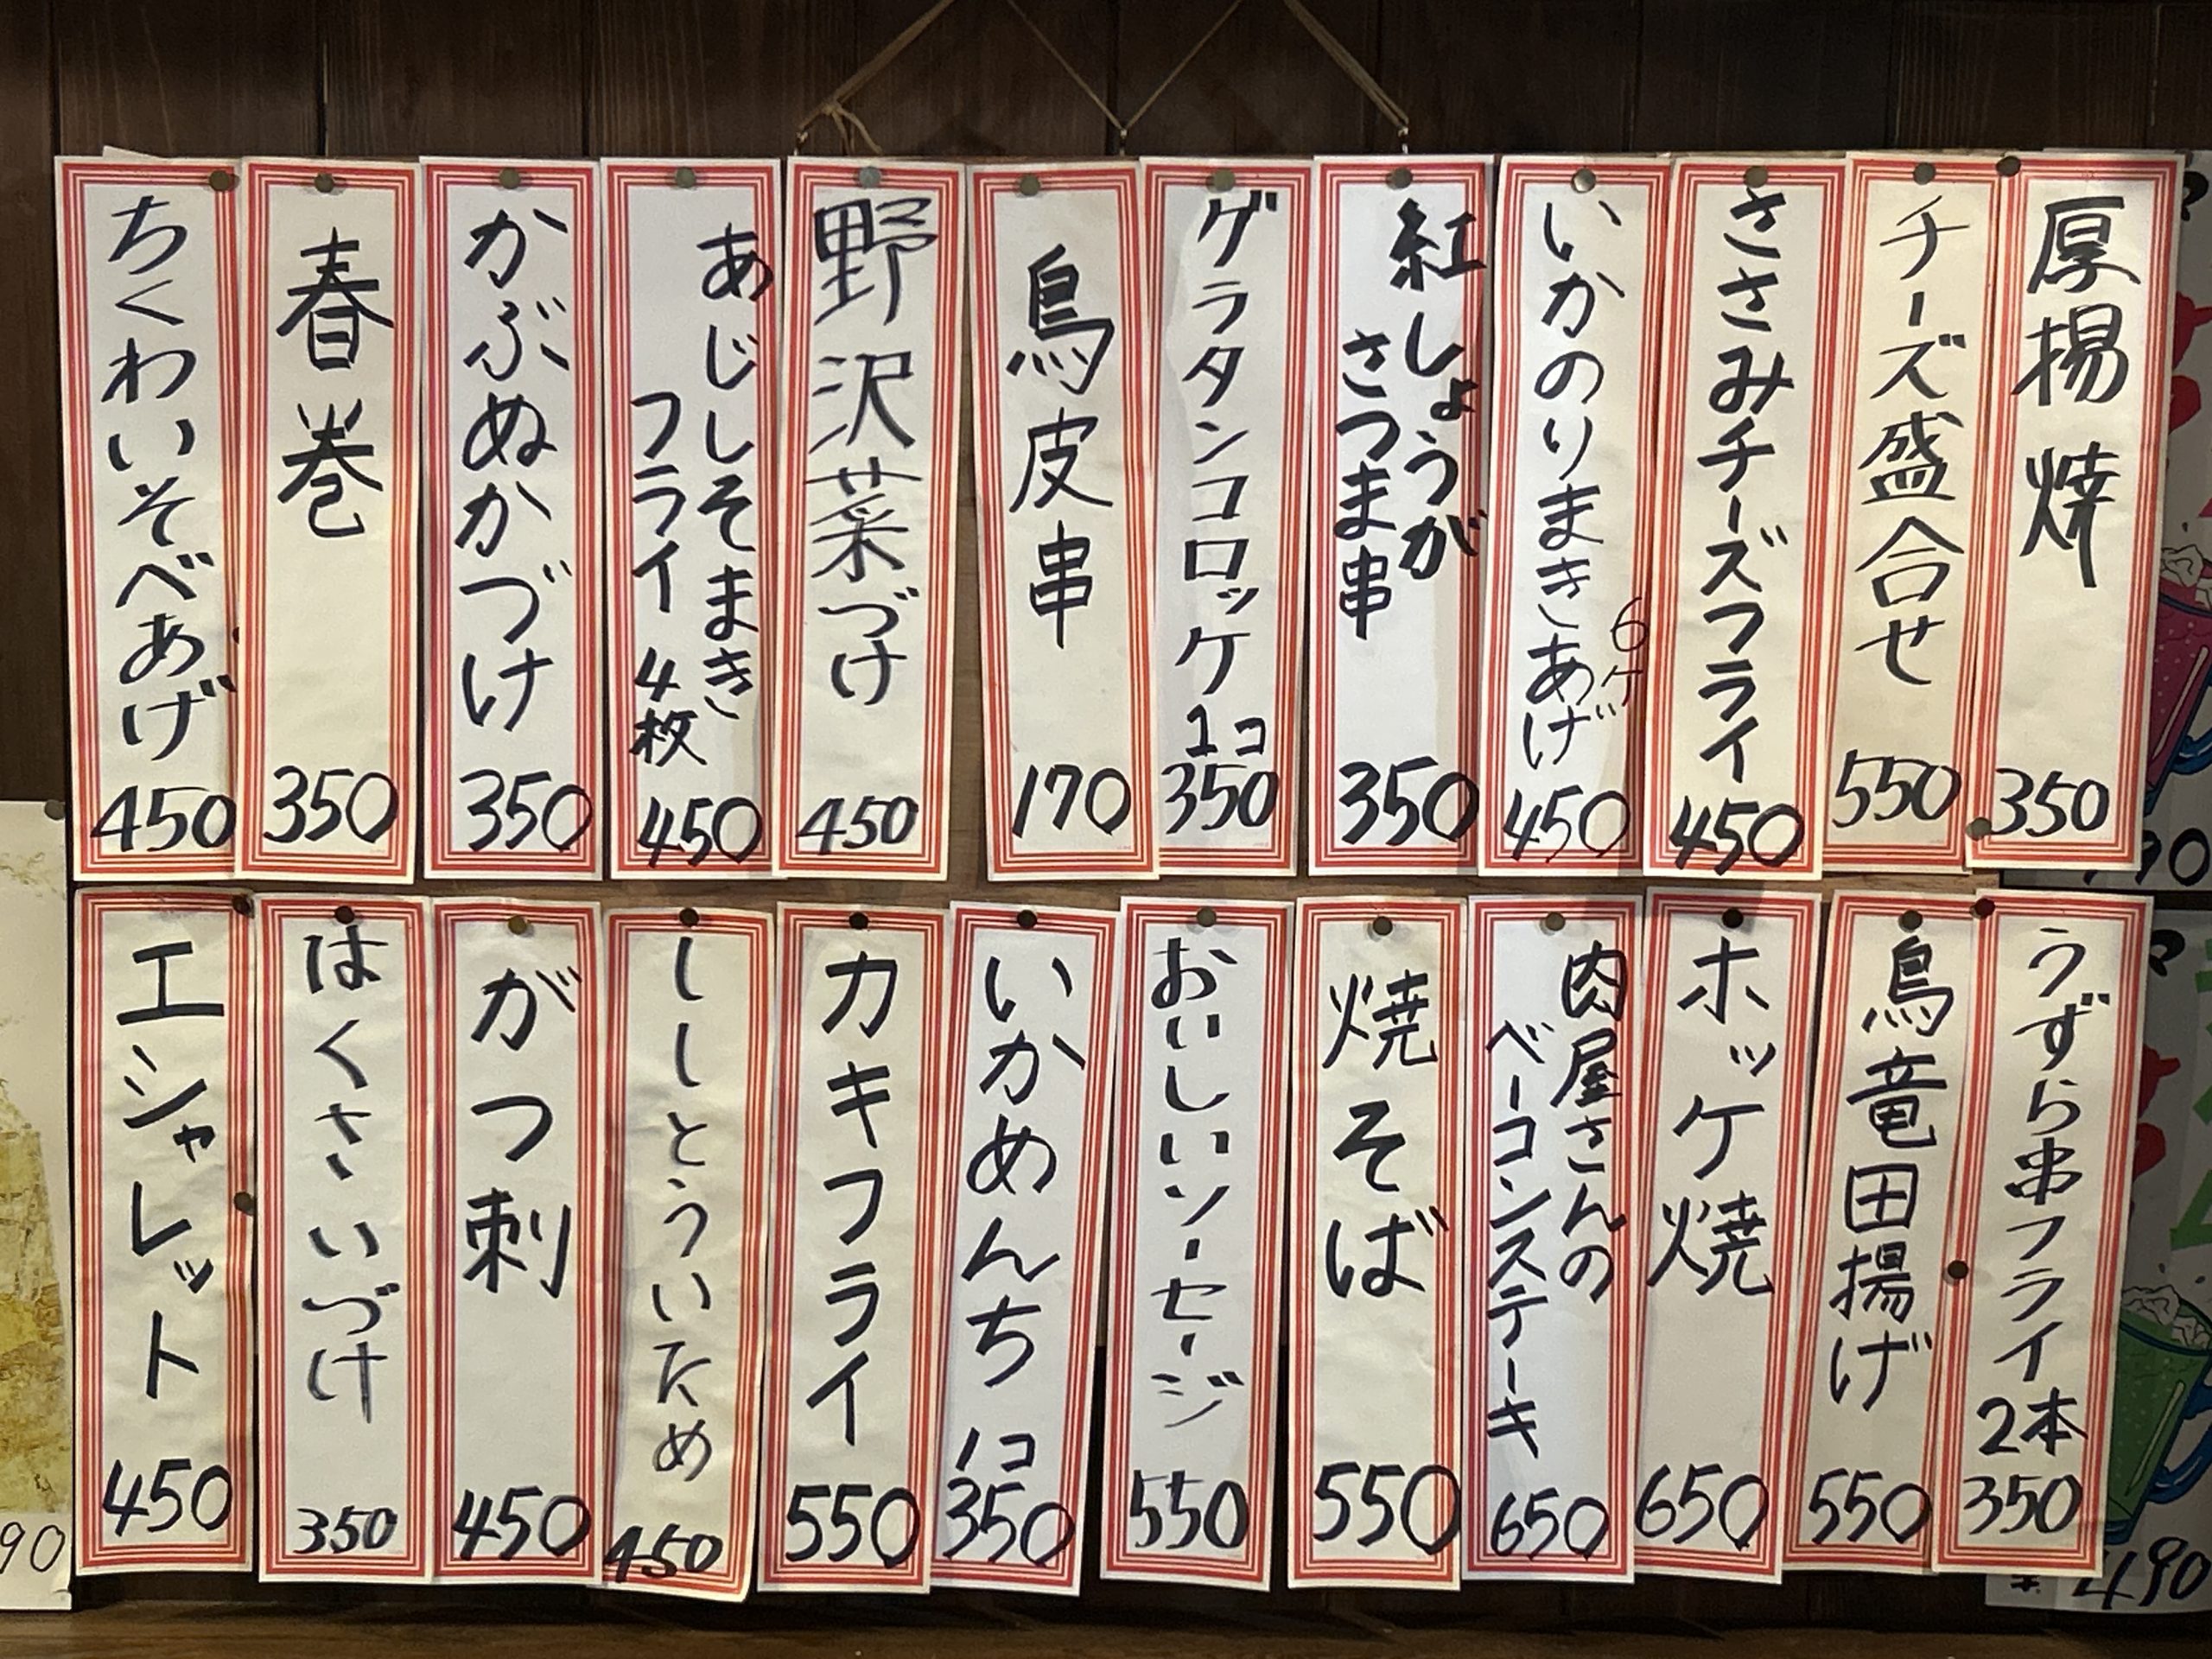 厚揚焼
350
チーズ盛合せ
550
ささみチーズフライ
450
いかのりまきあげ
6ケ
450
紅しょうが
さつま串
350
グラタンコロッケ
1コ
350
鳥皮串
170
野沢菜づけ
450
あじしそまき
フライ4枚
450
かぶぬかづけ
350
春巻
350
ちくわいそべあげ
450
うずら串フライ
2本
350
鳥竜田揚げ
550
ホッケ焼
650
肉屋さんの
ベーコンステーキ
650
焼そば
550
おいしいソーセージ
550
いかめんち
1コ
350
カキフライ
550
ししとういため
450
がつ刺
450
はくさいづけ
350
エシャレット
450
90
490